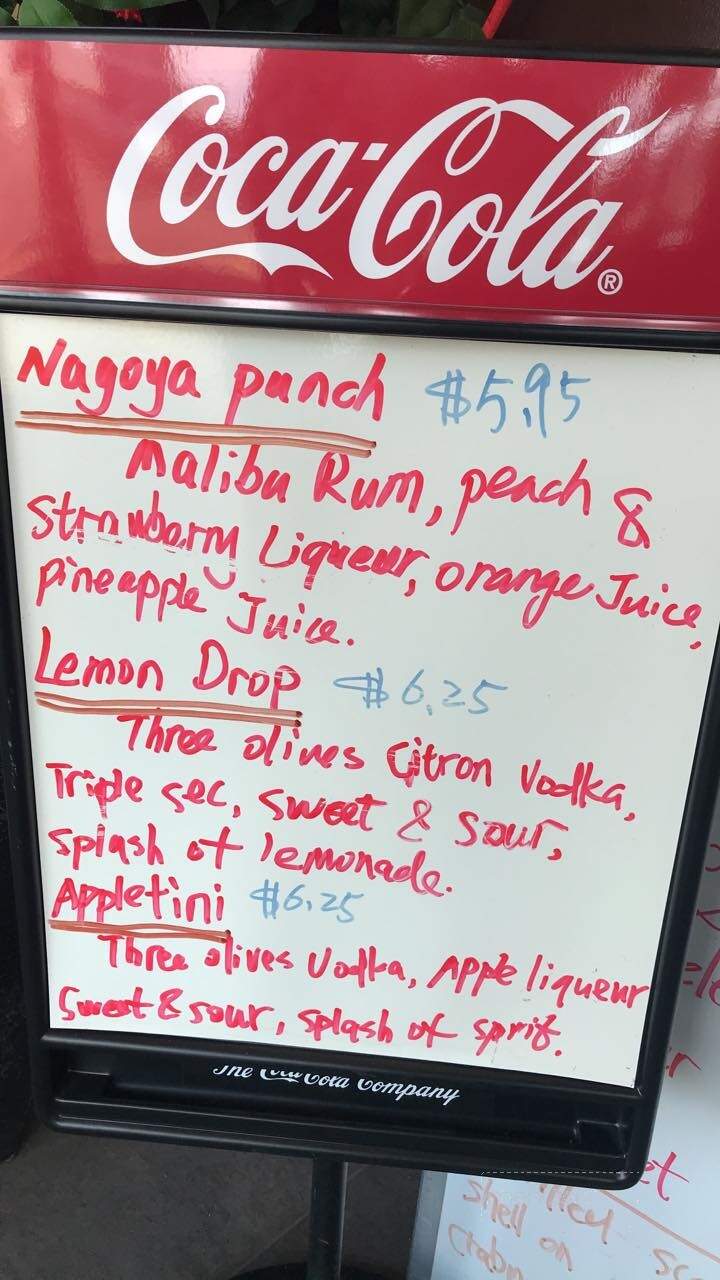 Coca-Cola®
Nagoya punch $5.95
Malibu Rum, peach &
Strawbarry Liqueur, orange Juice,
pineapple Juice.
Lemon Drop $6.25
Three olives Citron Vodka,
Triple sec, sweet & sour,
splash of lemonade.
Appletini $6.25
Three olives Vodka, Apple liqueur
Sweet & sour, splash of sprit.
The Coca-Cola Company
shell on